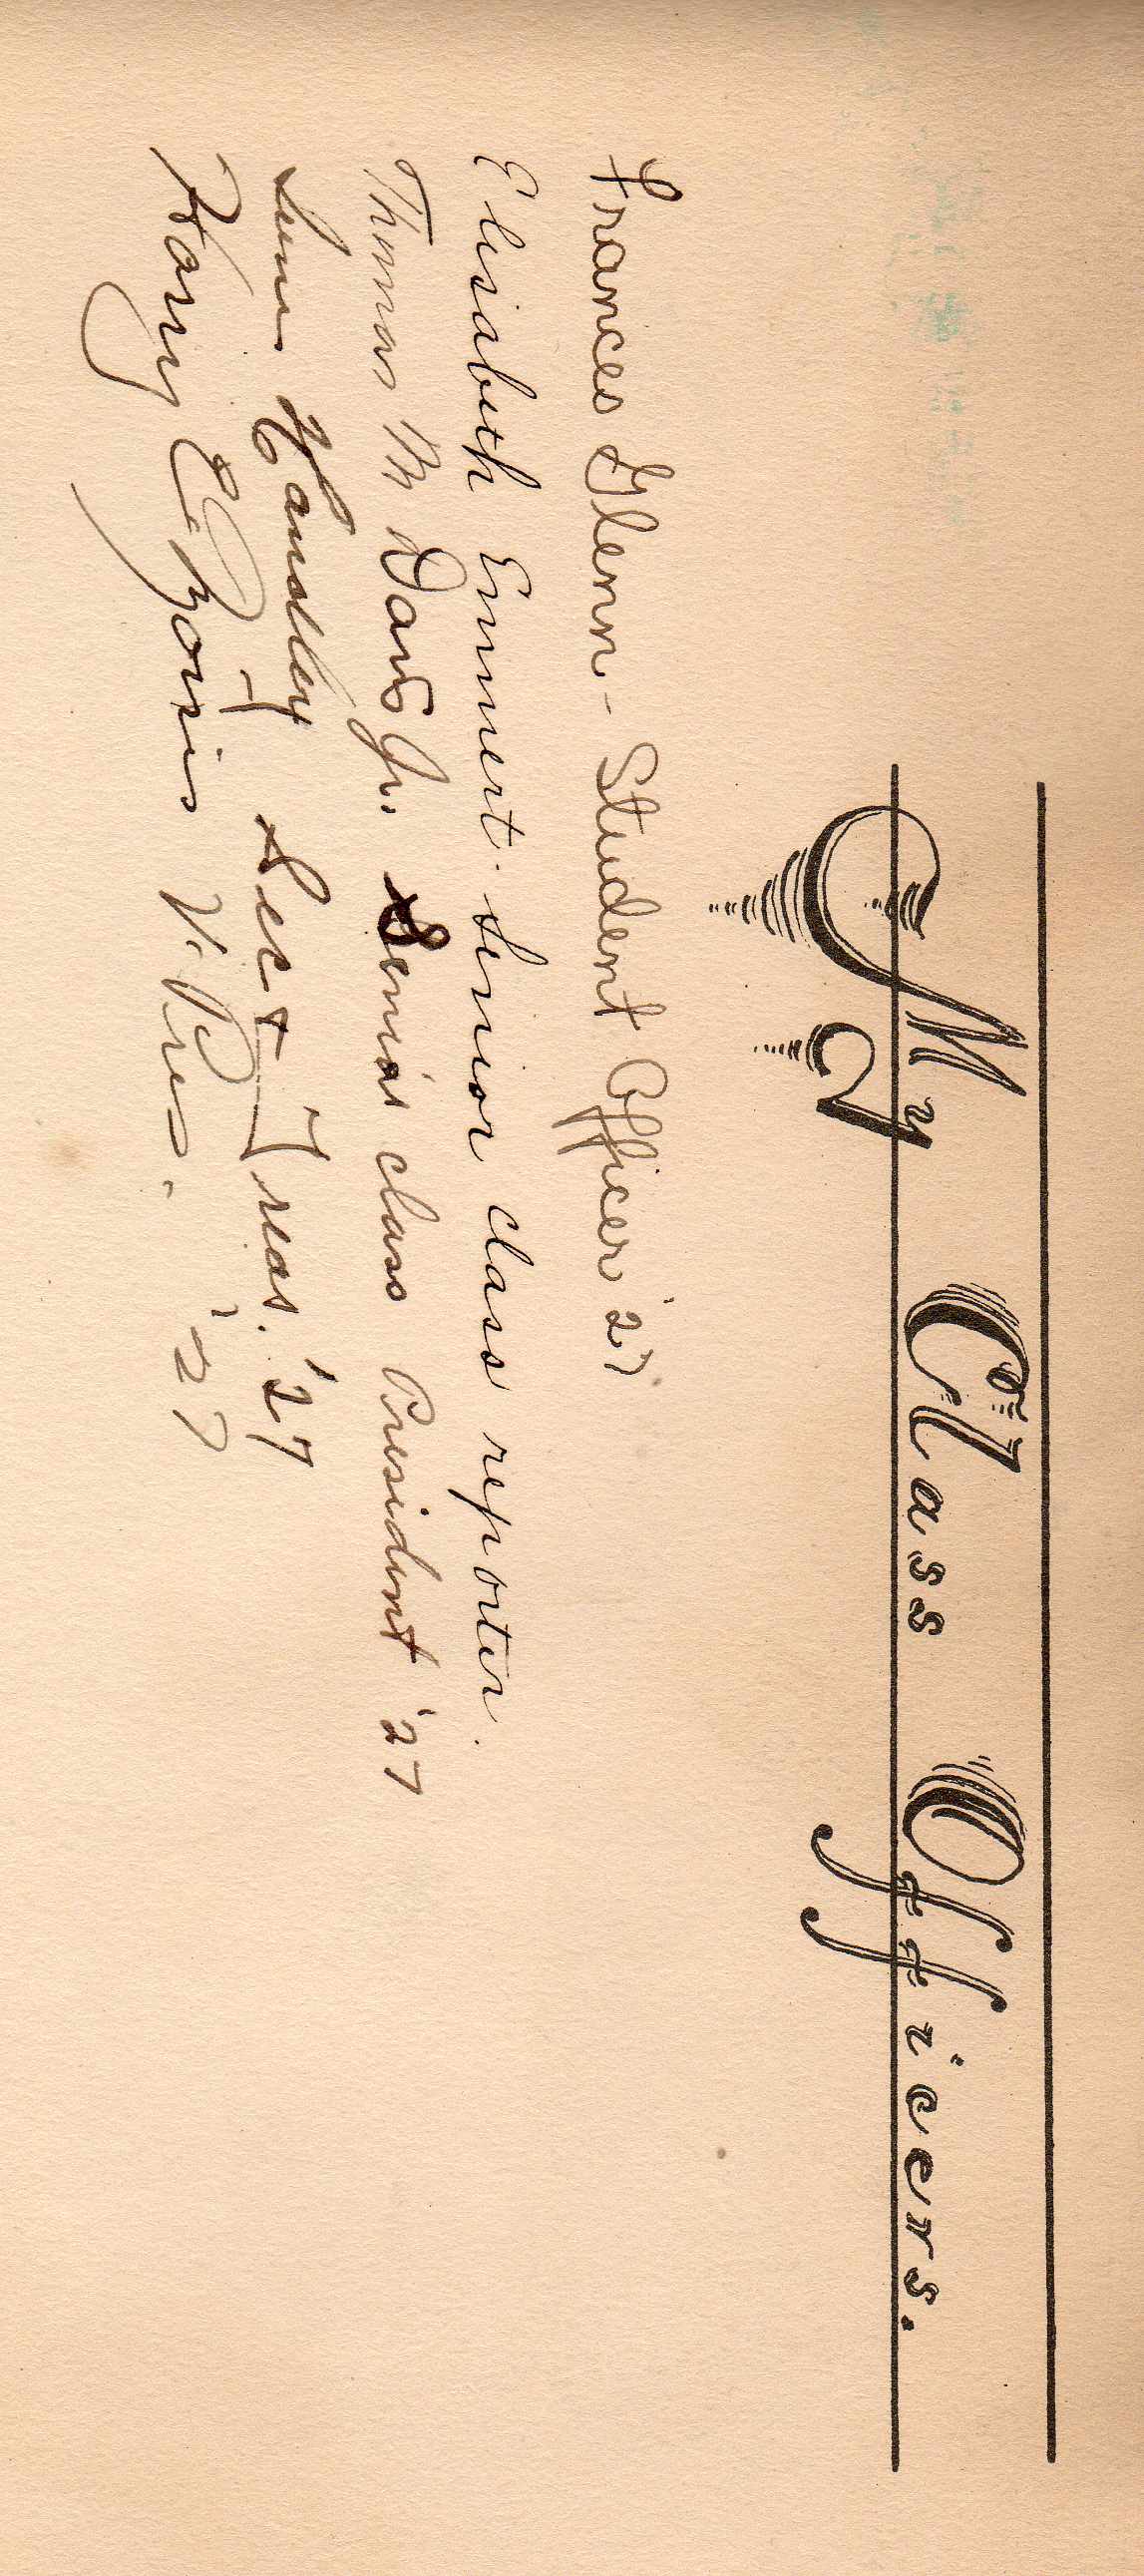 My Class Officers.
Frances Glenn - Student Officer '27
Elisabeth Emmert - Senior class reporter.
Thomas M Davis Jr. Senior class President '27
Handley Sec & Treas. '27
Harry V. Pres. '27